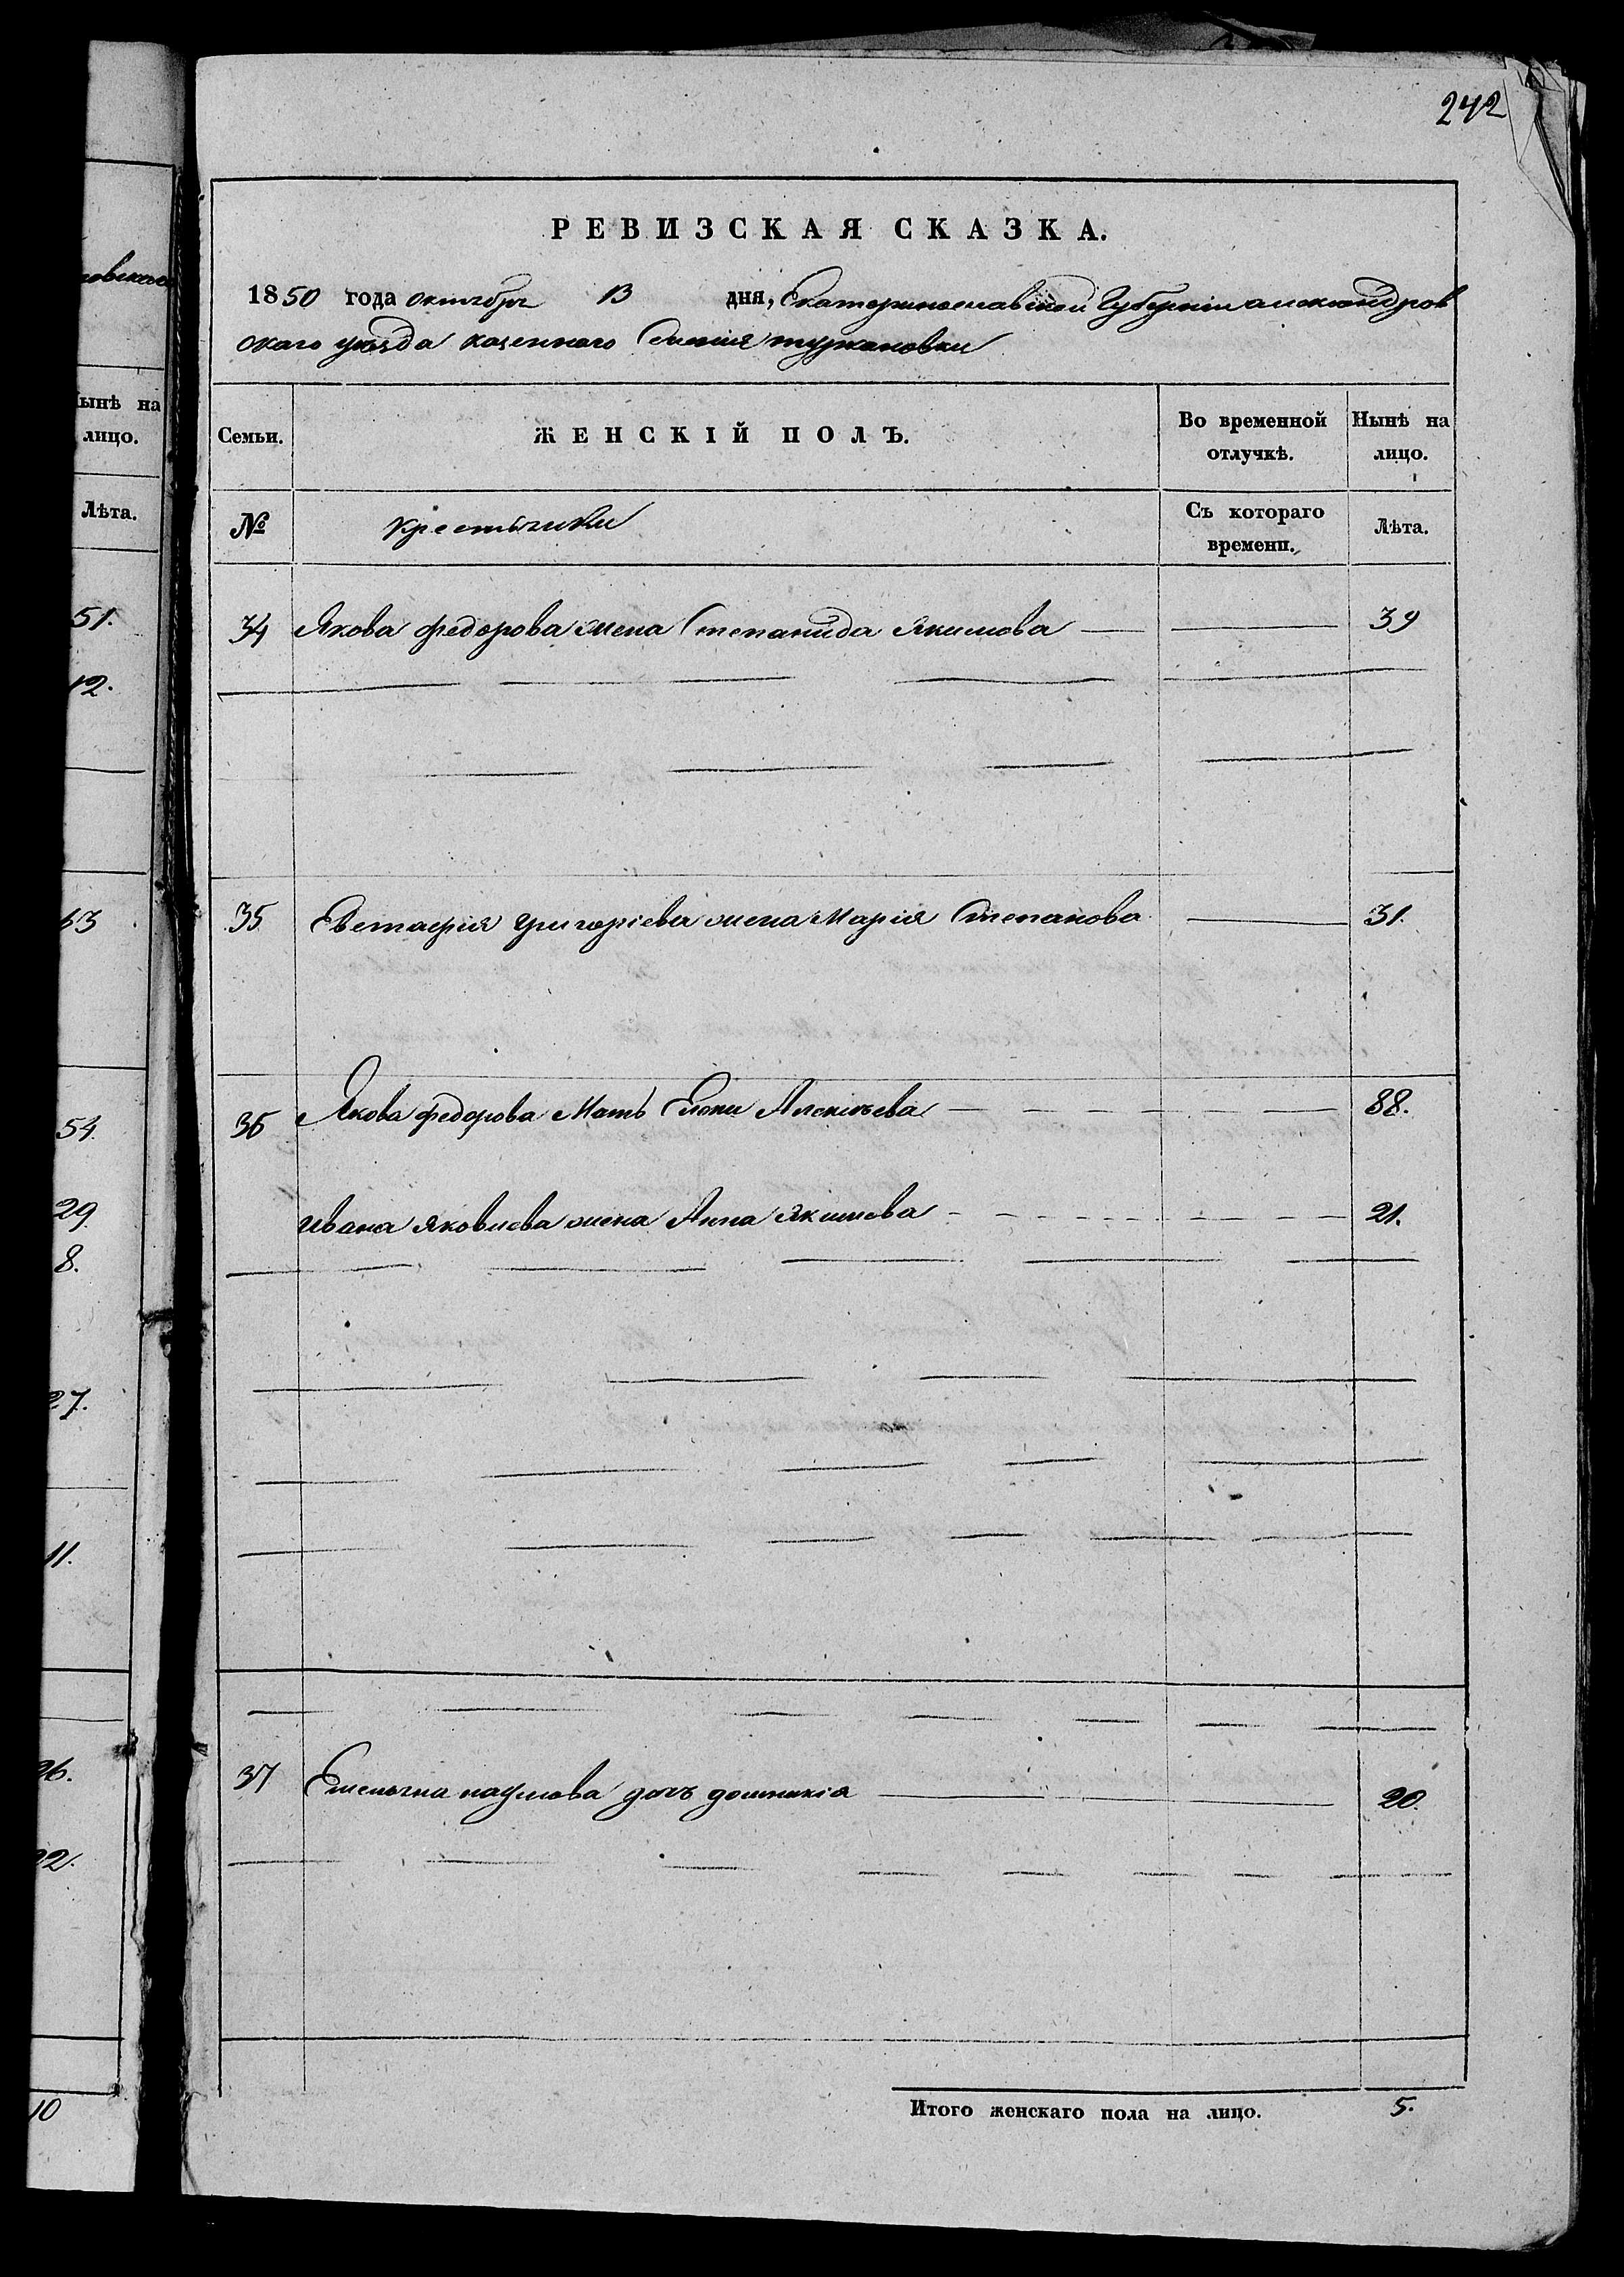 овскаго
ынѣ на
лицо.
Лѣта.
51.
12.
63
54.
29.
8.
27.
11.
26.
22.
10
242
РЕВИЗСКАЯ СКАЗКА.
1850 года октября 13 дня, Екатеринославской Губерніи александров
скаго уѣзда казенного Селенія
Семьи. ЖЕНСКІЙ ПОЛЪ. Во временной отлучкѣ. Нынѣ на лицо.
№ крестьянки Съ котораго времени. Лѣта.
34 Якова федорова жена Степанида Якимова 39
35 Евстафія григоріева жена Марія Степанова 31.
36 Якова федорова Мать Елена Алексѣева 88.
ивана яковлева жена Анна якимова 21.
37 Емельяна наумова дочь домникія 20.
Итого женскаго пола на лицо. 5.